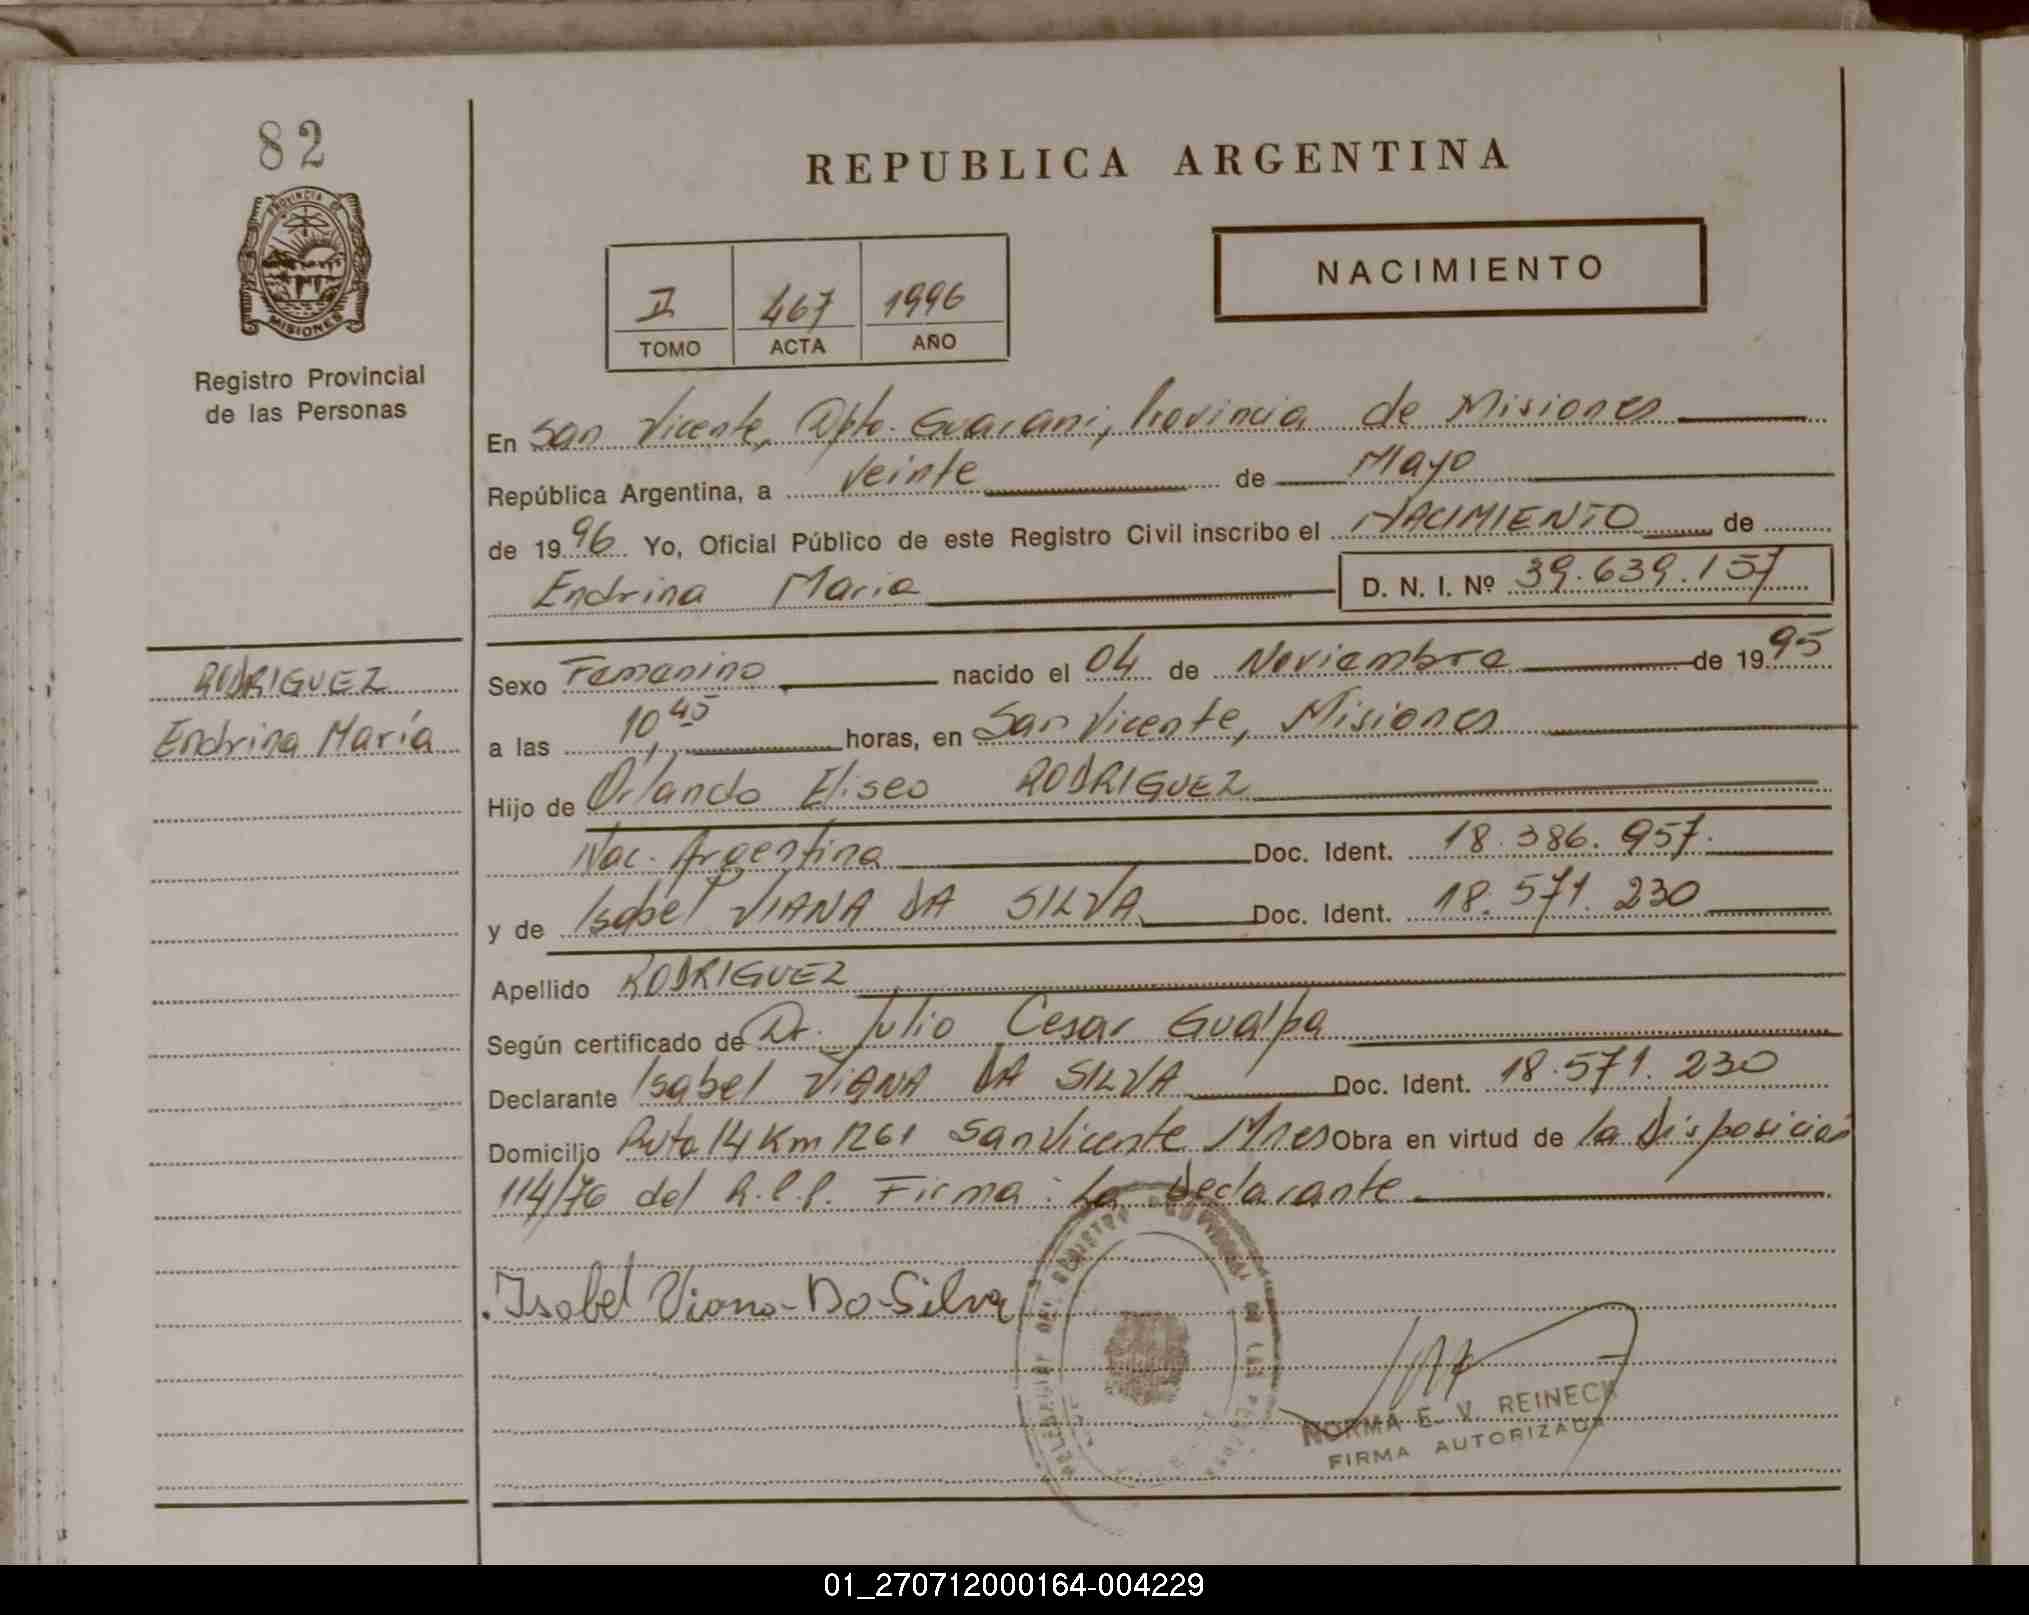 82
PROVINCIA DE
MISIONES
Registro Provincial
de las Personas
REPUBLICA ARGENTINA
NACIMIENTO
II 467 1996
TOMO ACTA AÑO
En San Vicente, Dpto. Guarani, Provincia de Misiones
República Argentina, a veinte de Mayo
de 1996 Yo, Oficial Público de este Registro Civil inscribo el NACIMIENTO de
Endrina Maria D. N. I. Nº 39.639.157
RODRIGUEZ
Endrina María
Sexo Femenino nacido el 04 de Noviembre de 1995
a las 10,45 horas, en San Vicente, Misiones
Hijo de Orlando Eliseo RODRIGUEZ
Nac. Argentina Doc. Ident. 18.386.957.
y de Isabel VIANA DA SILVA Doc. Ident. 18.571.230
Apellido RODRIGUEZ
Según certificado de Dr. Julio Cesar Gualpa
Declarante Isabel VIANA DA SILVA Doc. Ident. 18.571.230
Domicilio Ruta 14 Km 1261 San Vicente Mnes Obra en virtud de la Disposición
114/76 del R.P.P. Firma: La Declarante
Isabel Viana-Da-Silva
NORMA E. V. REINECK
FIRMA AUTORIZADA
01_270712000164-004229